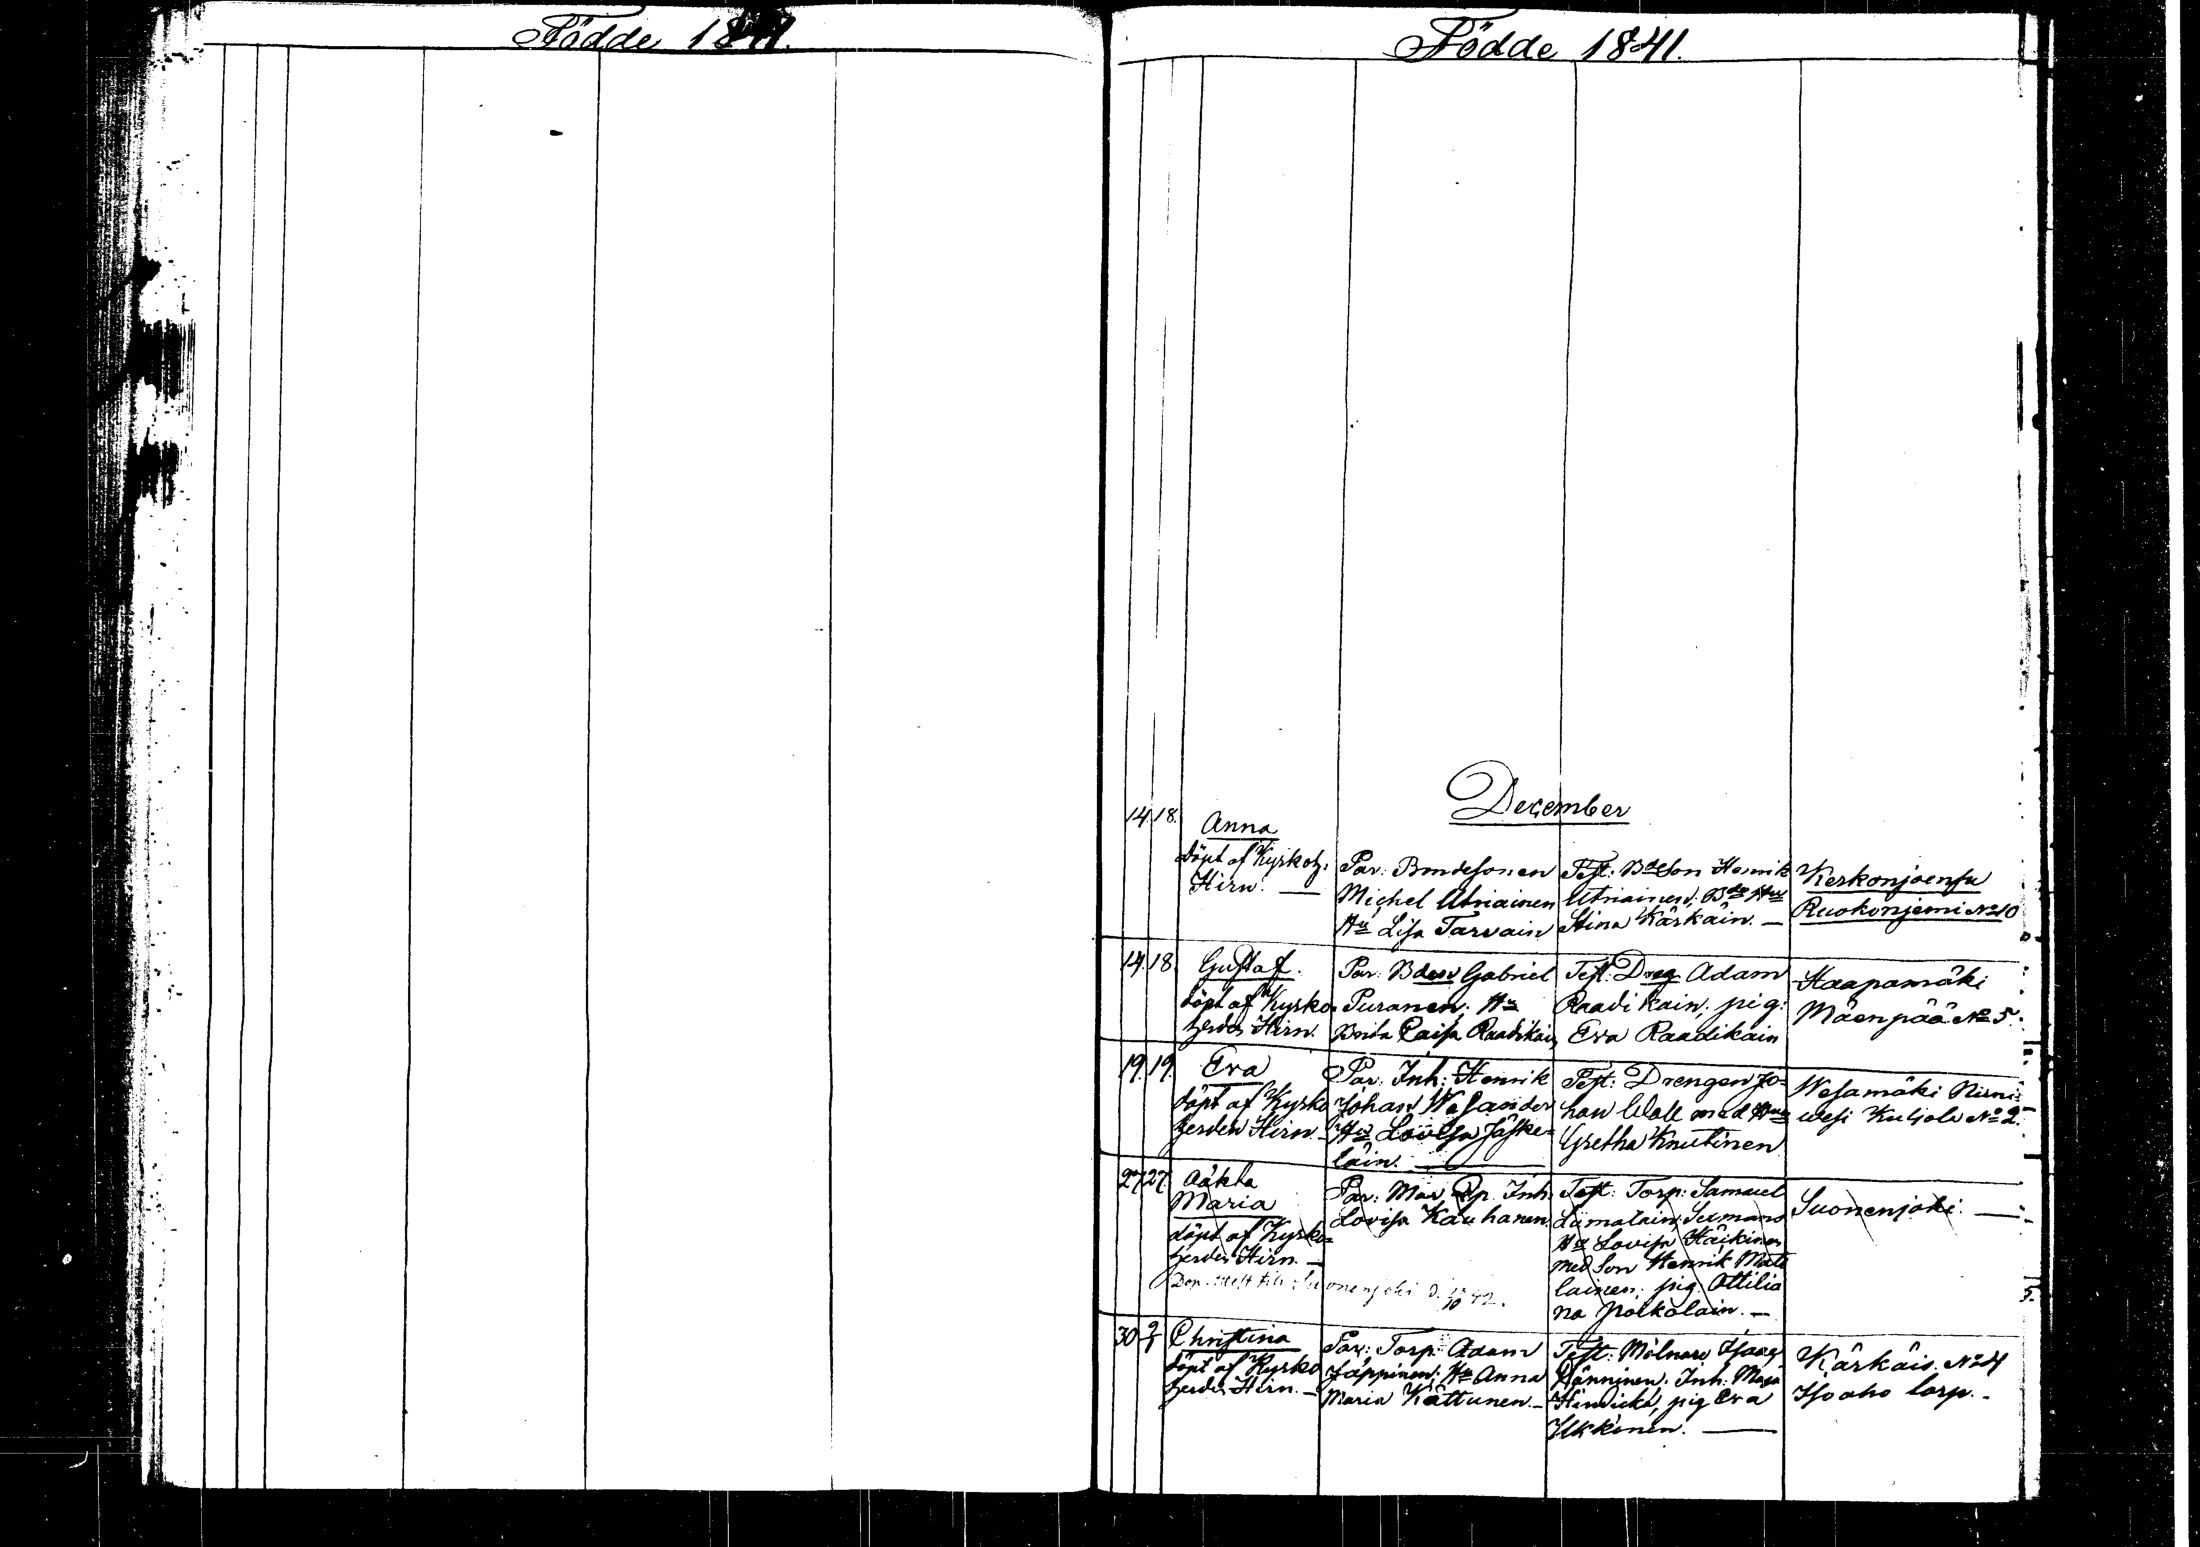 Födde 1841.
Födde 1841.
December
14. 18. Anna
döpt af Kyrkoh.
Hirn. —
Par: Bondesonen
Michel Utriainen
Hu Lisa Tarvain
Test: Bdeson Henrik
Utriainen; Bde Hu
Stina Kärkäin. —
Kerkonjoensu
Ruokoniemi No 10
14. 18. Gustaf.
döpt af Kyrko-
herden Hirn.
Par: Bden Gabriel
Puranen; Hu
Brita Caisa Raadikain
Test: Dreg Adam
Raadikain; pig:
Eva Raadikain
Haapamäki
Mäenpää No 5.
19. 19. Eva
döpt af Kyrko
herden Hirn
Par: Inh: Henrik
Johan Wesander
Hu Lovisa Jäske-
läin. —
Test: Drengen Jo-
han Wall med Hu
Gretha Knutinen
Wesamäki Niini-
wesi Kuljola No 2.
27. 27. Oäkta
Maria
döpt af Kyrko-
herden Hirn. —
Par: Inh:
Lovisa Kauhanen
Test: Torp: Samuel
Hu Lovisa
med Son Henrik Mata
lainen; pig: Ottilia
na Polkolain. —
Suonenjoki. —
Suonenjoki d. 42.
30 2/1 Christina
döpt af Kyrko
herden Hirn. —
Par: Torp: Adam
Jäppinen; Hu Anna
Maria Kättunen. —
Test: Mölnare Isaac
Ränninen. Inh: Maja
pig Eva
Ukkonen. —
Kärkäis. No 4
Isoaho torp. -